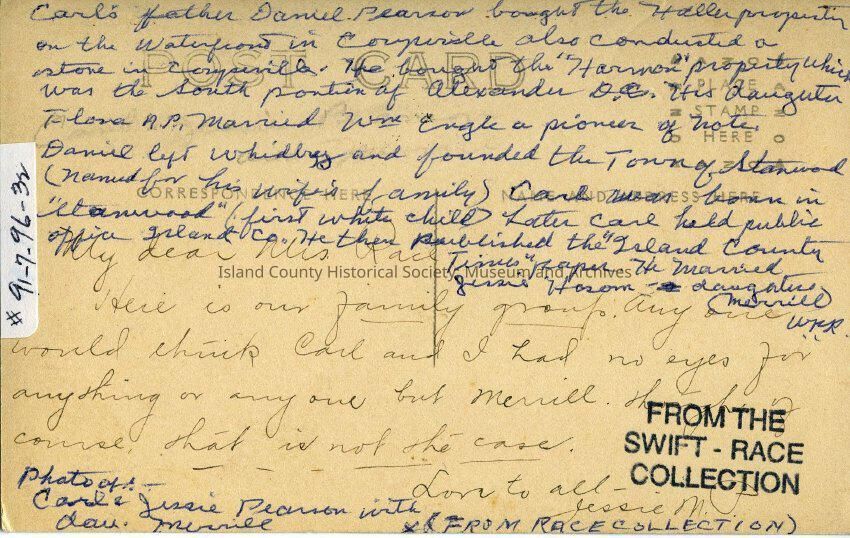 Carl's father Daniel Pearson bought the Haller property
on the Waterfront in Coupeville also conducted a
store in Coupeville. He bought the "Harmon" property which
was the South portion of Alexander D.C. His daughter
Flora A.P. Married Wm Engle a pioneer of note.
Daniel left Whidbey and founded the Town of Stanwood
(Named for his wife's family) Carl was born in
"Stanwood" (first white child) Later Carl held public
office Island Co. He then published the "Island County
Times" paper He Married
Jessie Hosom - daughter
(Merrill)
POST CARD
PLACE
STAMP
HERE
CORRESPONDENCE HERE
NAME AND ADDRESS HERE
My dear Mrs Race
Island County Historical Society, Museum and Archives
Here is our family group. Any one
would think Carl and I had no eyes for
anything or any one but Merrill. of
course, that is not the case.
Love to all -
Jessie M. P.
FROM THE
SWIFT - RACE
COLLECTION
Photo of: -
Carl & Jessie Pearson with
dau. Merrill
(FROM RACE COLLECTION)
# 91-7-96-32